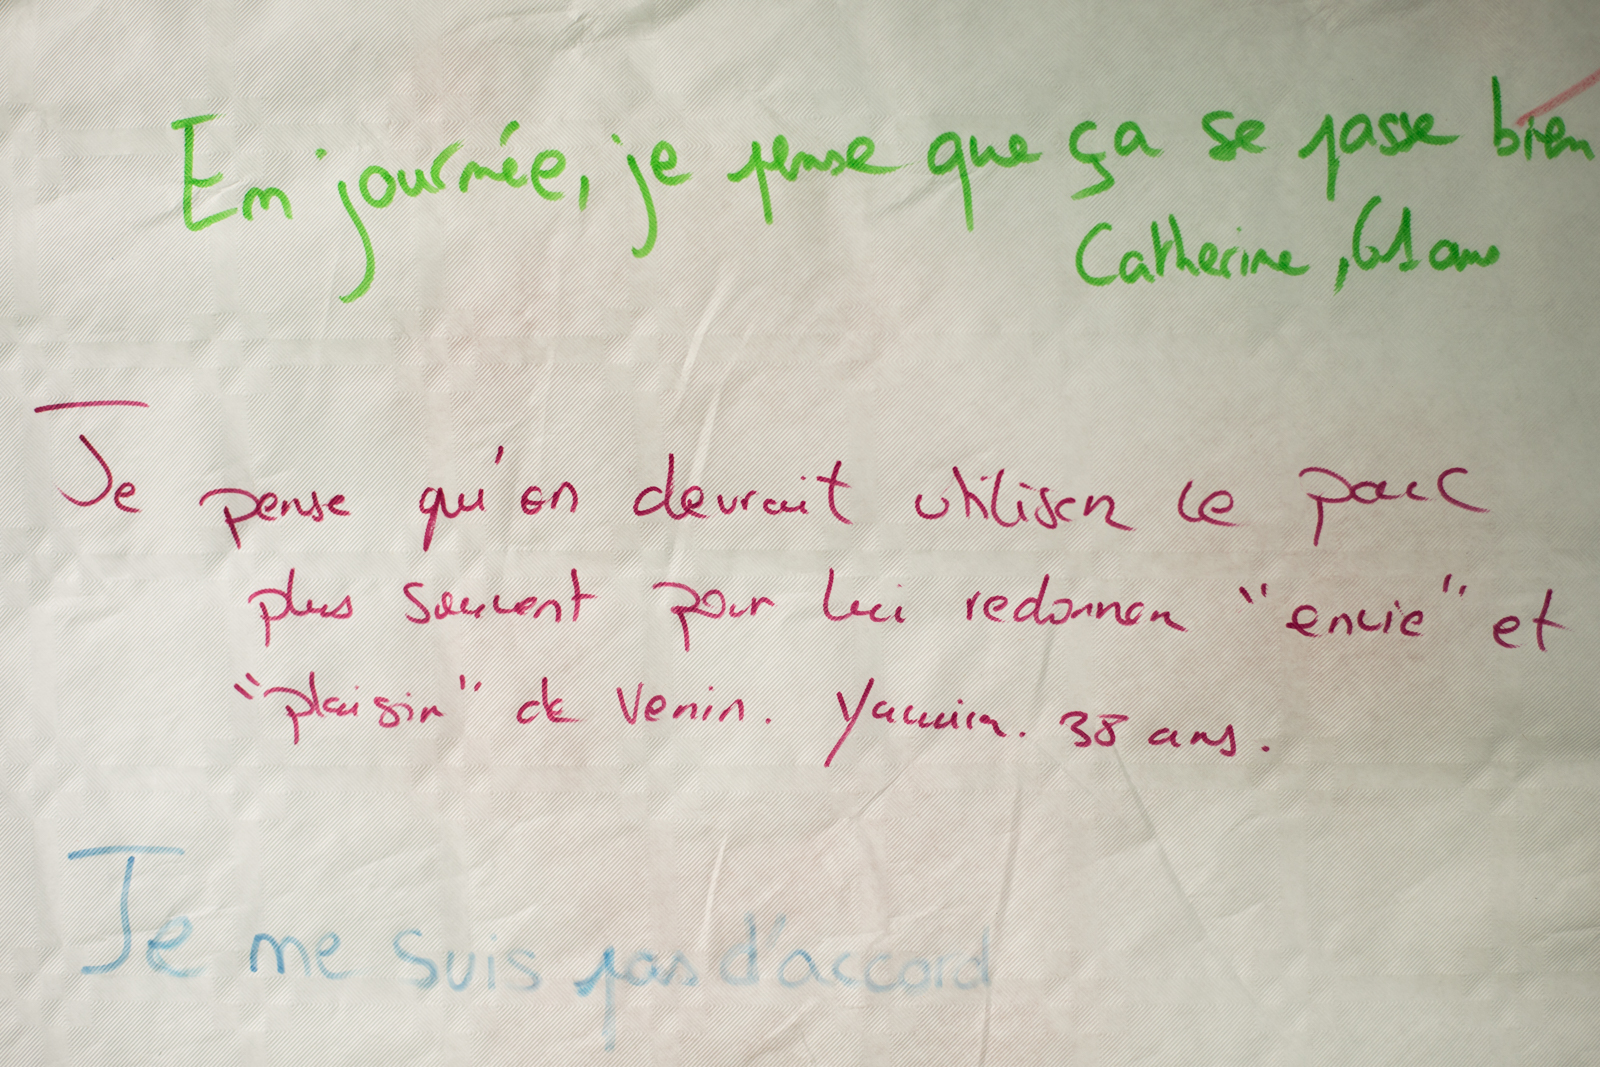 En journée, je pense que ça se passe bien
Catherine, 61 ans
Je pense qu'on devrait utiliser ce parc
plus souvent pour lui redonner "envie" et
"plaisir" de venir. 38 ans.
Je me suis pas d'accord